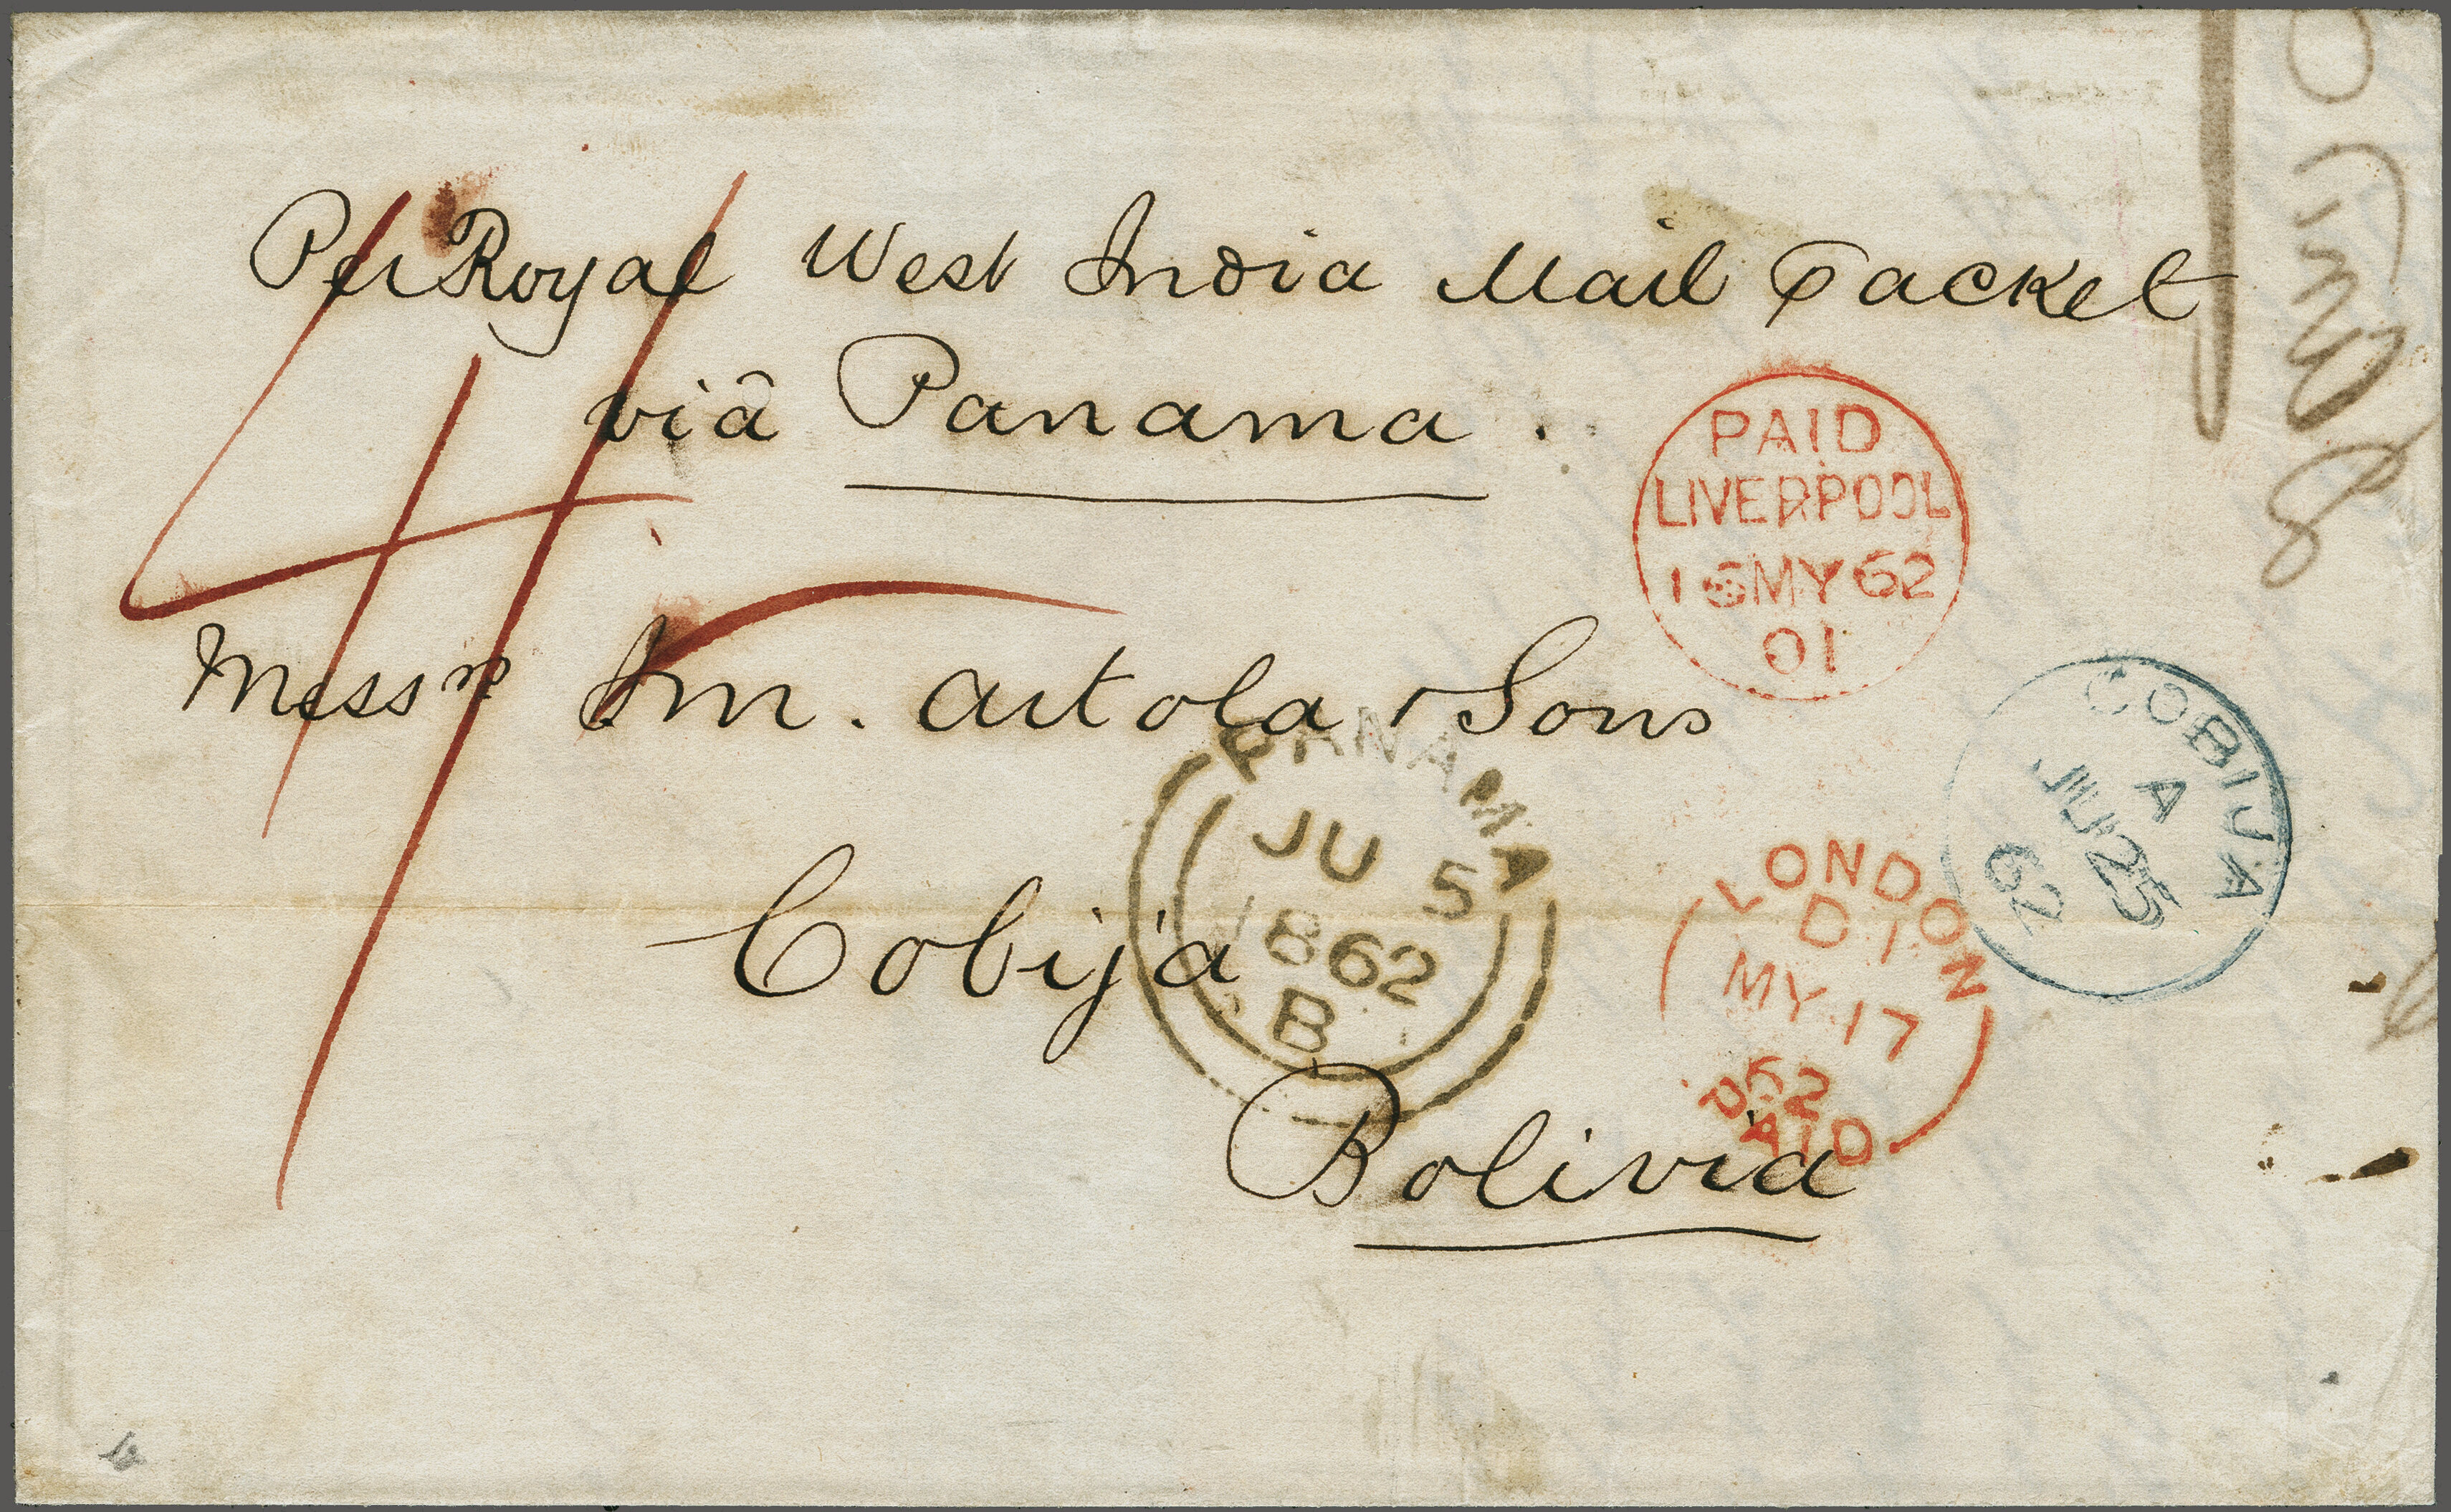 Per Royal West India Mail Packet
viâ Panama.
4/-
PAID
LIVERPOOL
MY 62
01
Messrs Jm. Artola & Sons
COBIJA
A
JU 25
62
PANAMA
JU 5
1862
B
Cobija
LONDON
D 1
MY 17
62
PAID
Bolivia